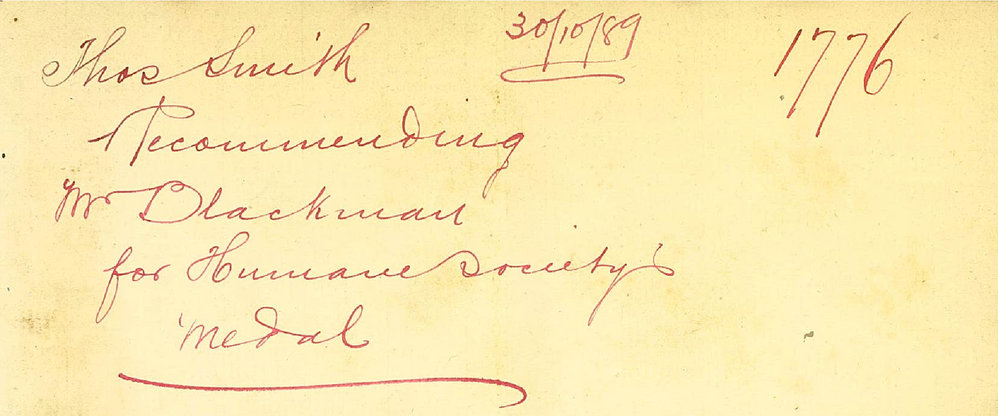 Thos Smith 30/10/89 1776
Recommending
Mr Blackman
for Humane Society's
Medal